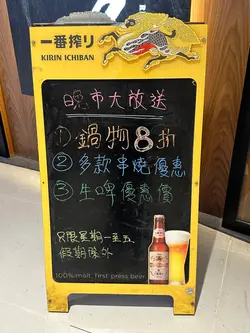 一番搾り
KIRIN ICHIBAN
晚市大放送
① 鍋物8折
② 多款串燒優惠
③ 生啤優惠價
只限星期一至五
假期除外
100% malt, first press beer.